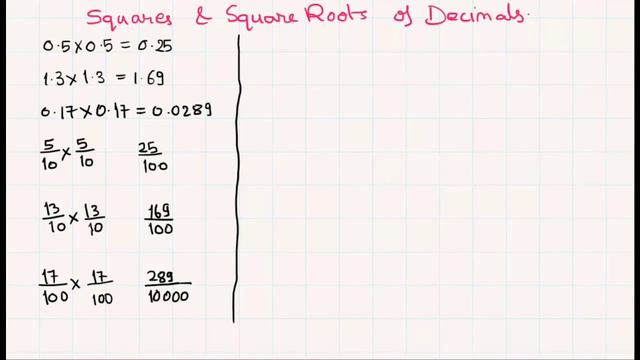 Squares & Square Roots of Decimals.
0.5 × 0.5 = 0.25
1.3 × 1.3 = 1.69
0.17 × 0.17 = 0.0289
5/10 × 5/10 25/100
13/10 × 13/10 169/100
17/100 × 17/100 289/10000